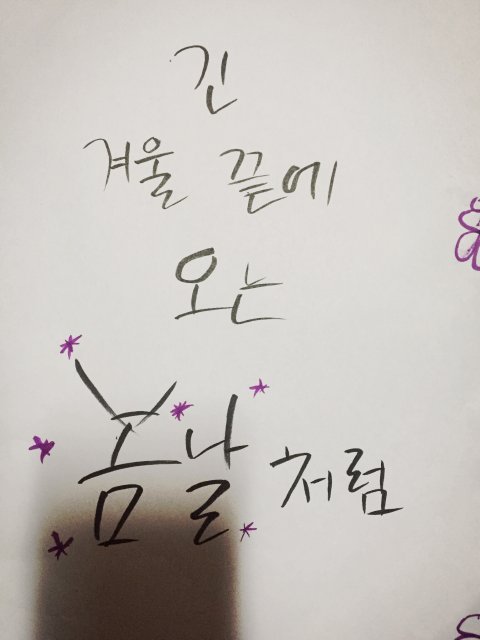 긴
겨울 끝에
오는
봄날처럼